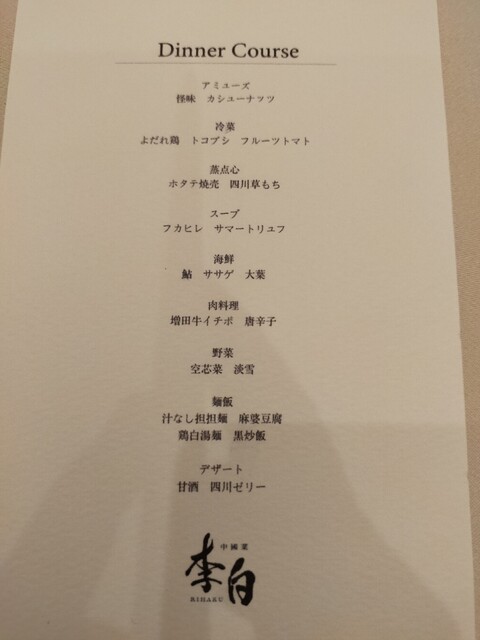 Dinner Course
アミューズ
怪味　カシューナッツ
冷菜
よだれ鶏　トコブシ　フルーツトマト
蒸点心
ホタテ焼売　四川草もち
スープ
フカヒレ　サマートリュフ
海鮮
鮎　ササゲ　大葉
肉料理
増田牛イチボ　唐辛子
野菜
空芯菜　淡雪
麺飯
汁なし担担麺　麻婆豆腐
鶏白湯麺　黒炒飯
デザート
甘酒　四川ゼリー
中國菜
李白
RIHAKU